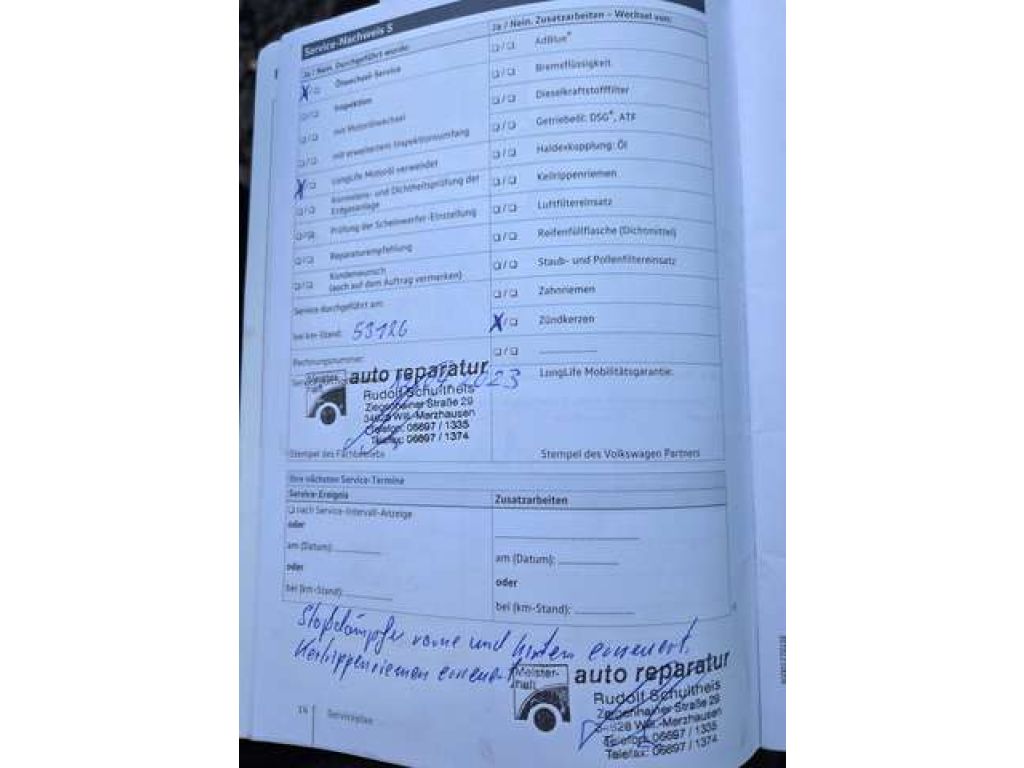 Service-Nachweis 5
Ja / Nein. Durchgeführt wurde:
X/❑ Ölwechsel-Service
❑/❑ Inspektion
❑/❑ mit Motorölwechsel
❑/❑ mit erweitertem Inspektionsumfang
X/❑ LongLife Motoröl verwendet
❑/❑ Korrosions- und Dichtheitsprüfung der
Erdgasanlage
❑/❑ Prüfung der Scheinwerfer-Einstellung
❑/❑ Reparaturempfehlung
❑/❑ Kundenwunsch
(auch auf dem Auftrag vermerken)
Service durchgeführt am:
bei km-Stand: 53126
Rechnungsnummer:
2023
Meister-
haft
auto reparatur
Rudolf Schultheis
Ziegenhainer Straße 29
34628 Will.-Merzhausen
Telefon: 06697 / 1335
Telefax: 06697 / 1374
Stempel des Fachbetriebs
Ja / Nein. Zusatzarbeiten – Wechsel von:
❑/❑ AdBlue®
❑/❑ Bremsflüssigkeit
❑/❑ Dieselkraftstofffilter
❑/❑ Getriebeöl: DSG®, ATF
❑/❑ Haldexkupplung: Öl
❑/❑ Keilrippenriemen
❑/❑ Luftfiltereinsatz
❑/❑ Reifenfüllflasche (Dichtmittel)
❑/❑ Staub- und Pollenfiltereinsatz
❑/❑ Zahnriemen
X/❑ Zündkerzen
❑/❑ ____________
LongLife Mobilitätsgarantie:
Stempel des Volkswagen Partners
Ihre nächsten Service-Termine
Service-Ereignis
❑ nach Service-Intervall-Anzeige
oder
am (Datum): _________
oder
bei (km-Stand): _________
Zusatzarbeiten
am (Datum): ___________
oder
bei (km-Stand): ___________
Stoßdämpfer vorne und hinten erneuert.
Keilrippenriemen erneuert
Meister-
haft
auto reparatur
Rudolf Schultheis
Ziegenhainer Straße 29
34628 Will.-Merzhausen
Telefon: 06697 / 1335
Telefax: 06697 / 1374
14 Serviceplan